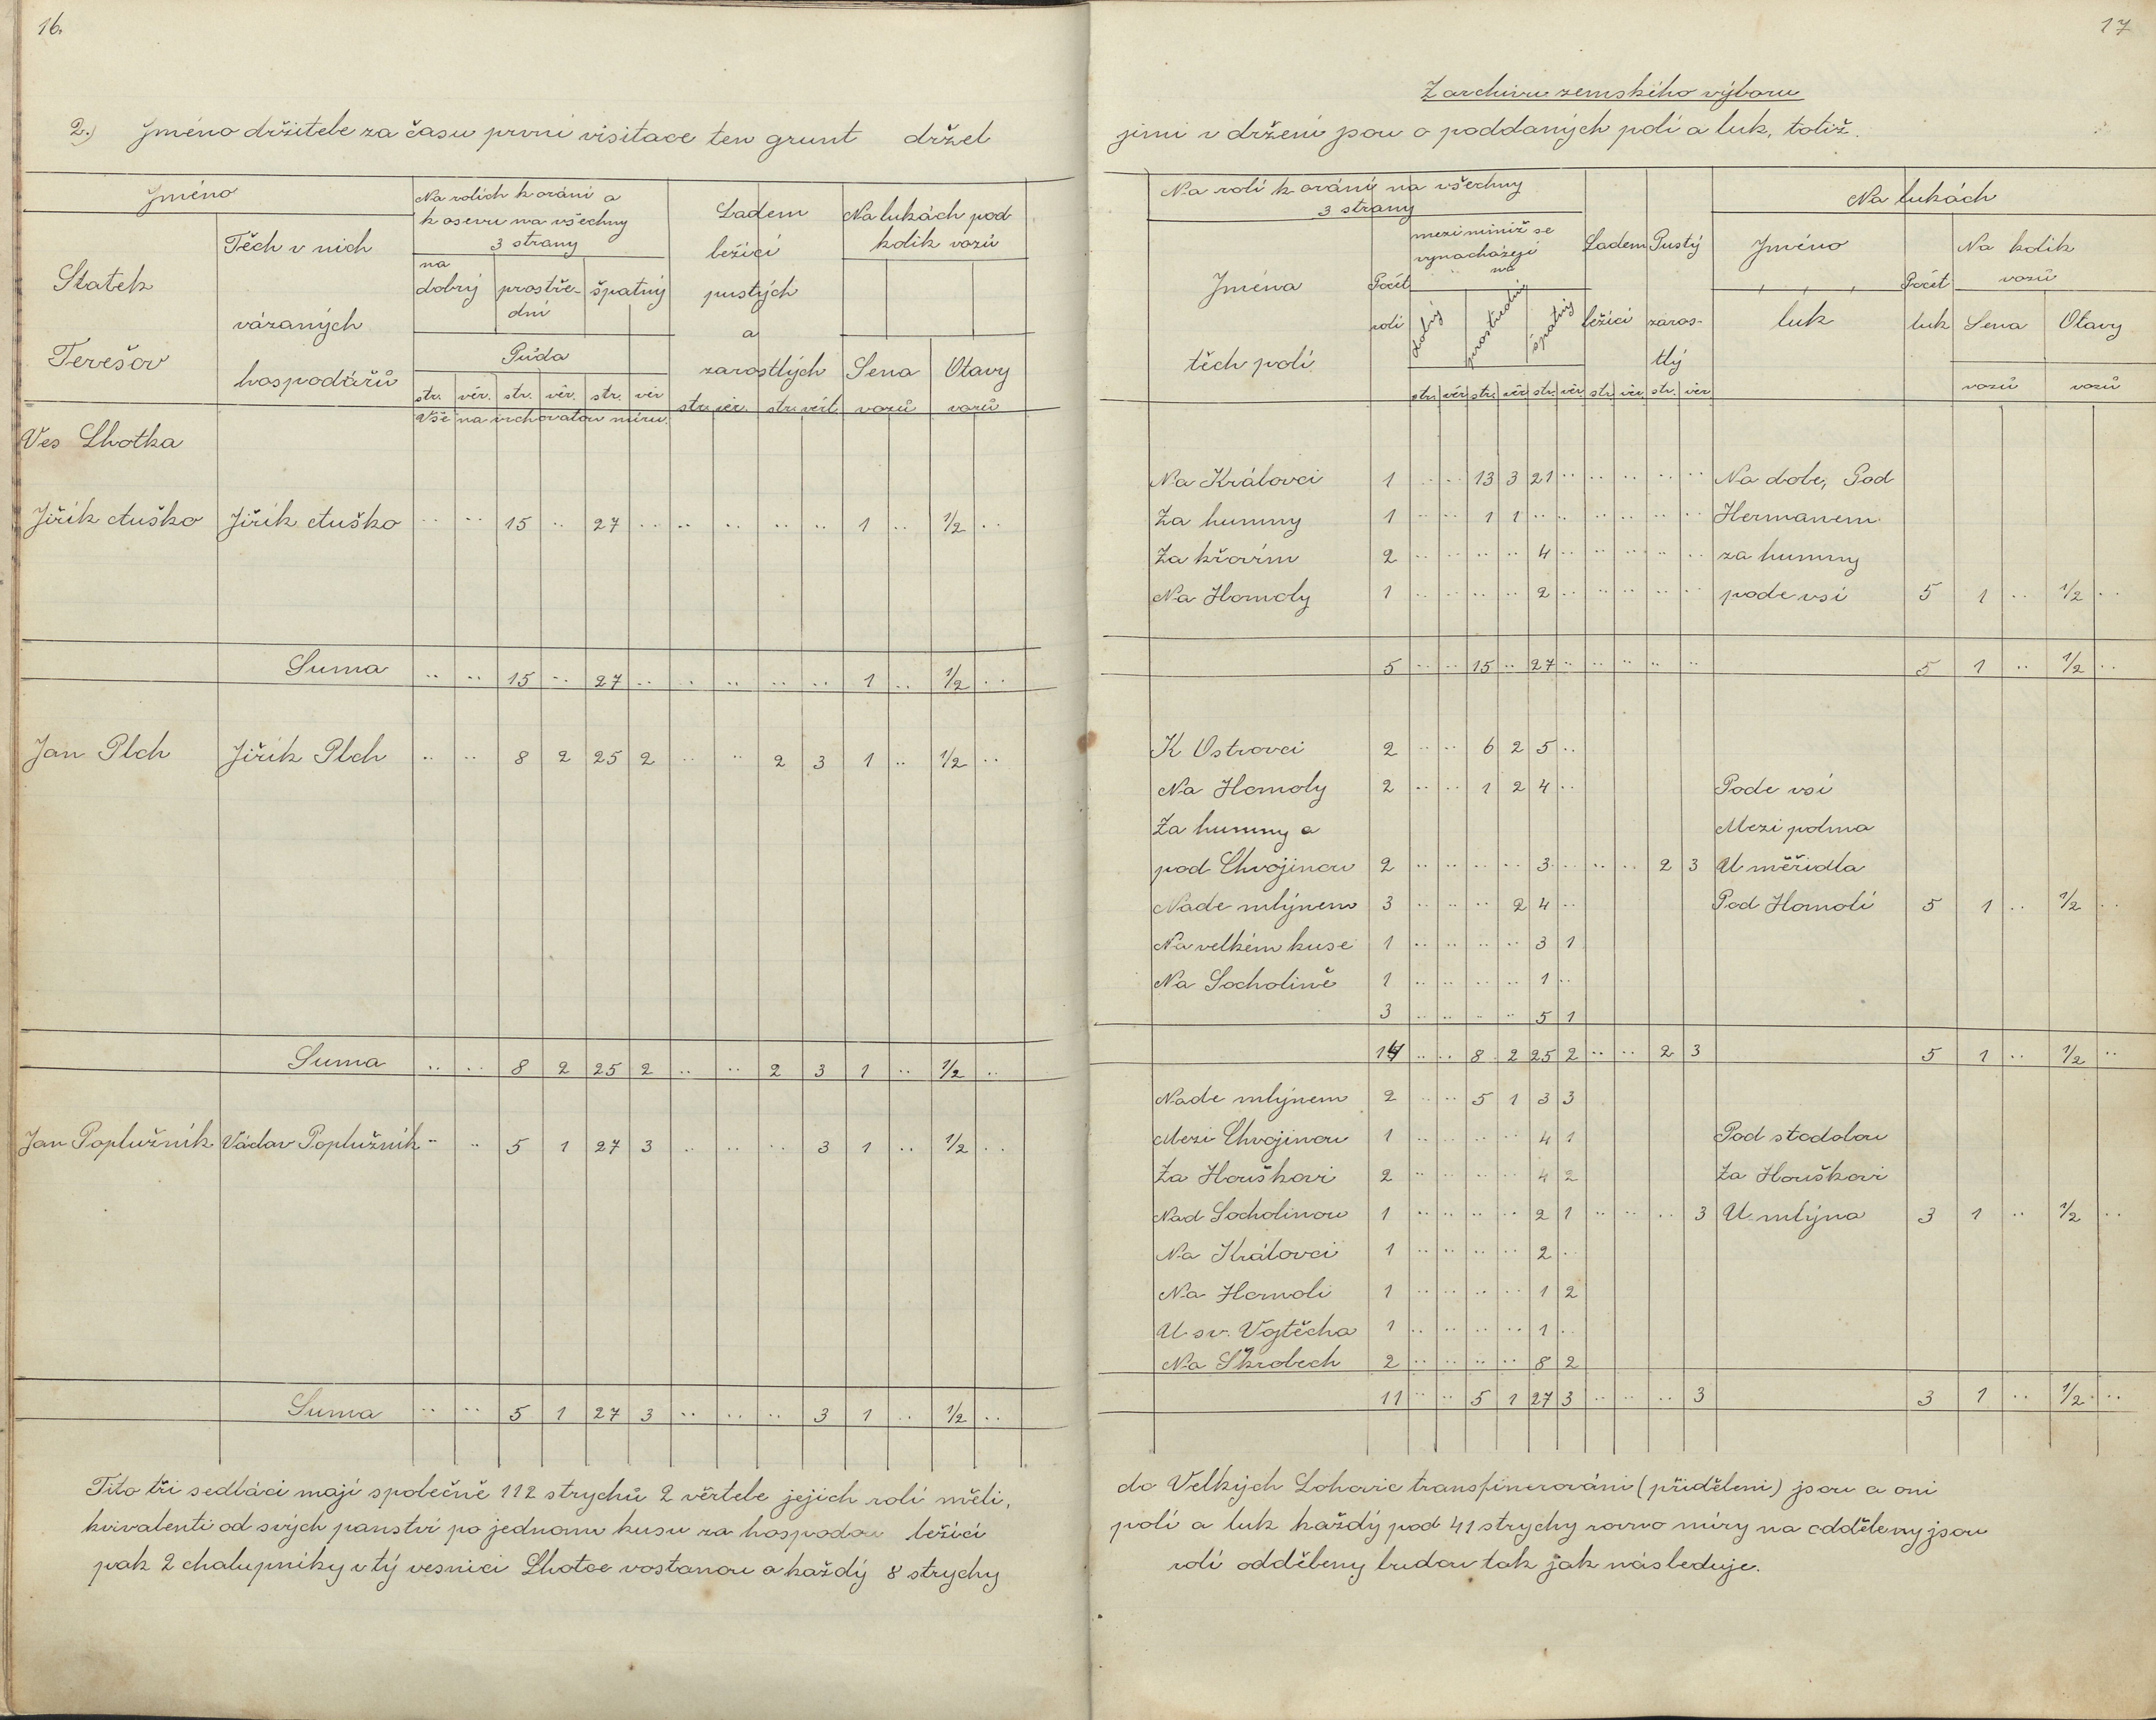 16.
2.) Jméno držitele za času první visitace ten grunt držel
Jméno
Na rolích k orání a k osevu na všechny 3 strany
Ladem ležící pustých a zarostlých
Na lukách pod kolik vozů
Statek Terešov
Těch v nich vázaných hospodářů
na dobrý
prostřední
špatný
Půda
Sena
Otavy
str. věr. str. věr. str. věr str. věr. str. věrt. vozů vozů
Vše na vrchovatou míru.
Ves Lhotka
Jiřík Auško Jiřík Auško .. .. 15 .. 27 .. .. .. .. .. 1 .. 1/2 ..
Suma .. .. 15 .. 27 .. .. .. .. .. 1 .. 1/2 ..
Jan Plch Jiřík Plch .. .. 8 2 25 2 .. .. 2 3 1 .. 1/2 ..
Suma .. .. 8 2 25 2 .. .. 2 3 1 .. 1/2 ..
Jan Poplužník Václav Poplužník .. .. 5 1 27 3 .. .. .. 3 1 .. 1/2 ..
Suma .. .. 5 1 27 3 .. .. .. 3 1 .. 1/2 ..
Tito tři sedláci mají společně 112 strychů 2 věrtele jejich rolí měli,
kvivalenti od svých panství po jednom kusu za hospodou ležící
pak 2 chalupníky v tý vesnici Lhotce vostanou a každý 8 strychy
17
Z archivu zemského výboru
jimi v držení jsou o poddaných polí a luk, totiž.
Na rolí k orání na všechny 3 strany
Na lukách
Jména těch polí
Počet rolí
mezi nimiž se vynacházejí na
dobrý
prostřední
špatný
Ladem ležící
Pustý zarostlý
Jméno luk
Počet luk
Na kolik vozů
Sena
Otavy
str. věr str. věr str. věr. str. věr. str. věr vozů vozů
Na Královci 1 .. .. 13 3 21 .. .. .. .. .. Na dole, Pod
Za humny 1 .. .. 1 1 .. .. .. .. .. .. Hermanem
Za křovím 2 .. .. .. .. 4 .. .. .. .. .. za humny
Na Homoly 1 .. .. .. .. 2 .. .. .. .. .. pode vsí 5 1 .. 1/2 ..
5 .. .. 15 .. 27 .. .. .. .. .. 5 1 .. 1/2 ..
K Ostrovci 2 .. .. 6 2 5 ..
Na Homoly 2 .. .. 1 2 4 .. Pode vsí
Za humny a Mezi polma
pod Chvojinou 2 .. .. .. .. 3 .. .. .. 2 3 U měřidla
Nade mlýnem 3 .. .. .. 2 4 .. Pod Homolí 5 1 .. 1/2 ..
Na velkém kuse 1 .. .. .. .. 3 1
Na Socholině 1 .. .. .. .. 1 ..
3 .. .. .. .. 5 1
14 .. .. 8 2 25 2 .. .. 2 3 5 1 .. 1/2 ..
Nade mlýnem 2 .. .. 5 1 3 3
Mezi Chvojinou 1 .. .. .. .. 4 1 Pod stodolou
Za Houškovi 2 .. .. .. .. 4 2 Za Houškovi
Nad Socholinou 1 .. .. .. .. 2 1 .. .. .. 3 U mlýna 3 1 .. 1/2 ..
Na Královci 1 .. .. .. .. 2 ..
Na Homoli 1 .. .. .. .. 1 2
U sv. Vojtěcha 1 .. .. .. .. 1 ..
Na Škrobech 2 .. .. .. .. 8 2
11 .. .. 5 1 27 3 .. .. .. 3 3 1 .. 1/2 ..
do Velkých Lohovic transfinerováni (přiděleni) jsou a oni
polí a luk každý pod 41 strychy rovno míry na odděleny jsou
rolí odděleny budou tak jak následuje.